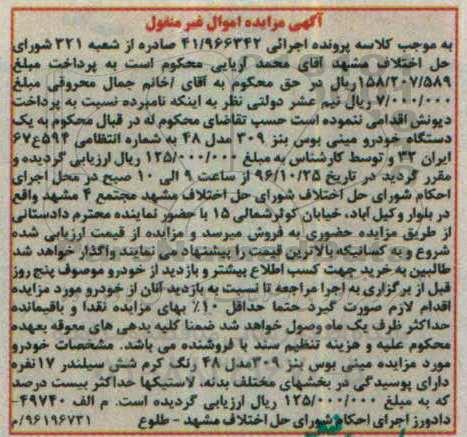 آگهی مزایده اموال غیر منقول
به موجب کلاسه پرونده اجرائی ۴۱/۹۶۶۳۴۲ صادره از شعبه ۳۲۱ شورای
حل اختلاف مشهد آقای محمد آریایی محکوم است به پرداخت مبلغ
۱۵۸/۲۰۷/۵۸۹ریال در حق محکوم به آقای /خانم جمال محروقی مبلغ
۷/۰۰۰/۰۰۰ ریال نیم عشر دولتی نظر به اینکه نامبرده نسبت به پرداخت
دیونش اقدامی ننموده است حسب تقاضای محکوم له در قبال محکوم به یک
دستگاه خودرو مینی بوس بنز ۳۰۹ مدل ۴۸ به شماره انتظامی ۵۹۴ع۶۷
ایران ۳۲ و توسط کارشناس به مبلغ ۱۲۵/۰۰۰/۰۰۰ ریال ارزیابی گردیده و
مقرر گردید در تاریخ ۹۶/۱۰/۲۵ از ساعت ۹ الی ۱۰ صبح در محل اجرای
احکام شورای حل اختلاف شورای حل اختلاف مشهد مجتمع ۴ مشهد واقع
در بلوار وکیل آباد، خیابان کوثرشمالی ۱۵ با حضور نماینده محترم دادستانی
از طریق مزایده حضوری به فروش میرسد و مزایده از قیمت ارزیابی شده
شروع و به کسانیکه بالاترین قیمت را پیشنهاد می نمایند واگذار خواهد شد
طالبین به خرید جهت کسب اطلاع بیشتر و بازدید از خودرو موصوف پنج روز
قبل از برگزاری به اجرا مراجعه تا نسبت به بازدید آنان از خودرو مورد مزایده
اقدام لازم صورت گیرد حتما حداقل ۱۰٪ بهای مزایده نقدا و باقیمانده
حداکثر ظرف یک ماه وصول خواهد شد ضمنا کلیه بدهی های معوقه بعهده
محکوم علیه و هزینه تنظیم سند با فروشنده می باشد. مشخصات خودرو
مورد مزایده مینی بوس بنز ۳۰۹مدل ۴۸ رنگ کرم شش سیلندر ۱۷نفره
دارای پوسیدگی در بخشهای مختلف بدنه، لاستیکها حداکثر بیست درصد
که به مبلغ ۱۲۵/۰۰۰/۰۰۰ ریال ارزیابی گردیده است. م الف ۴۹۷۴۰-
دادورز اجرای احکام شورای حل اختلاف مشهد - طلوع ۹۶۱۹۶۷۳۱/م